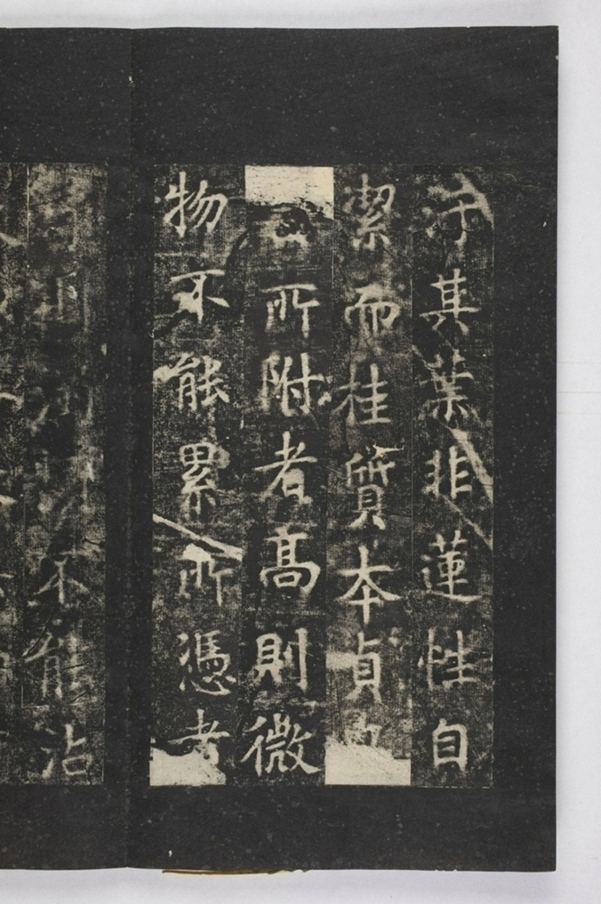 汙其葉非蓮性自
潔而桂質本貞
所附者高則微
物不能累所憑者
則濁類不能沾